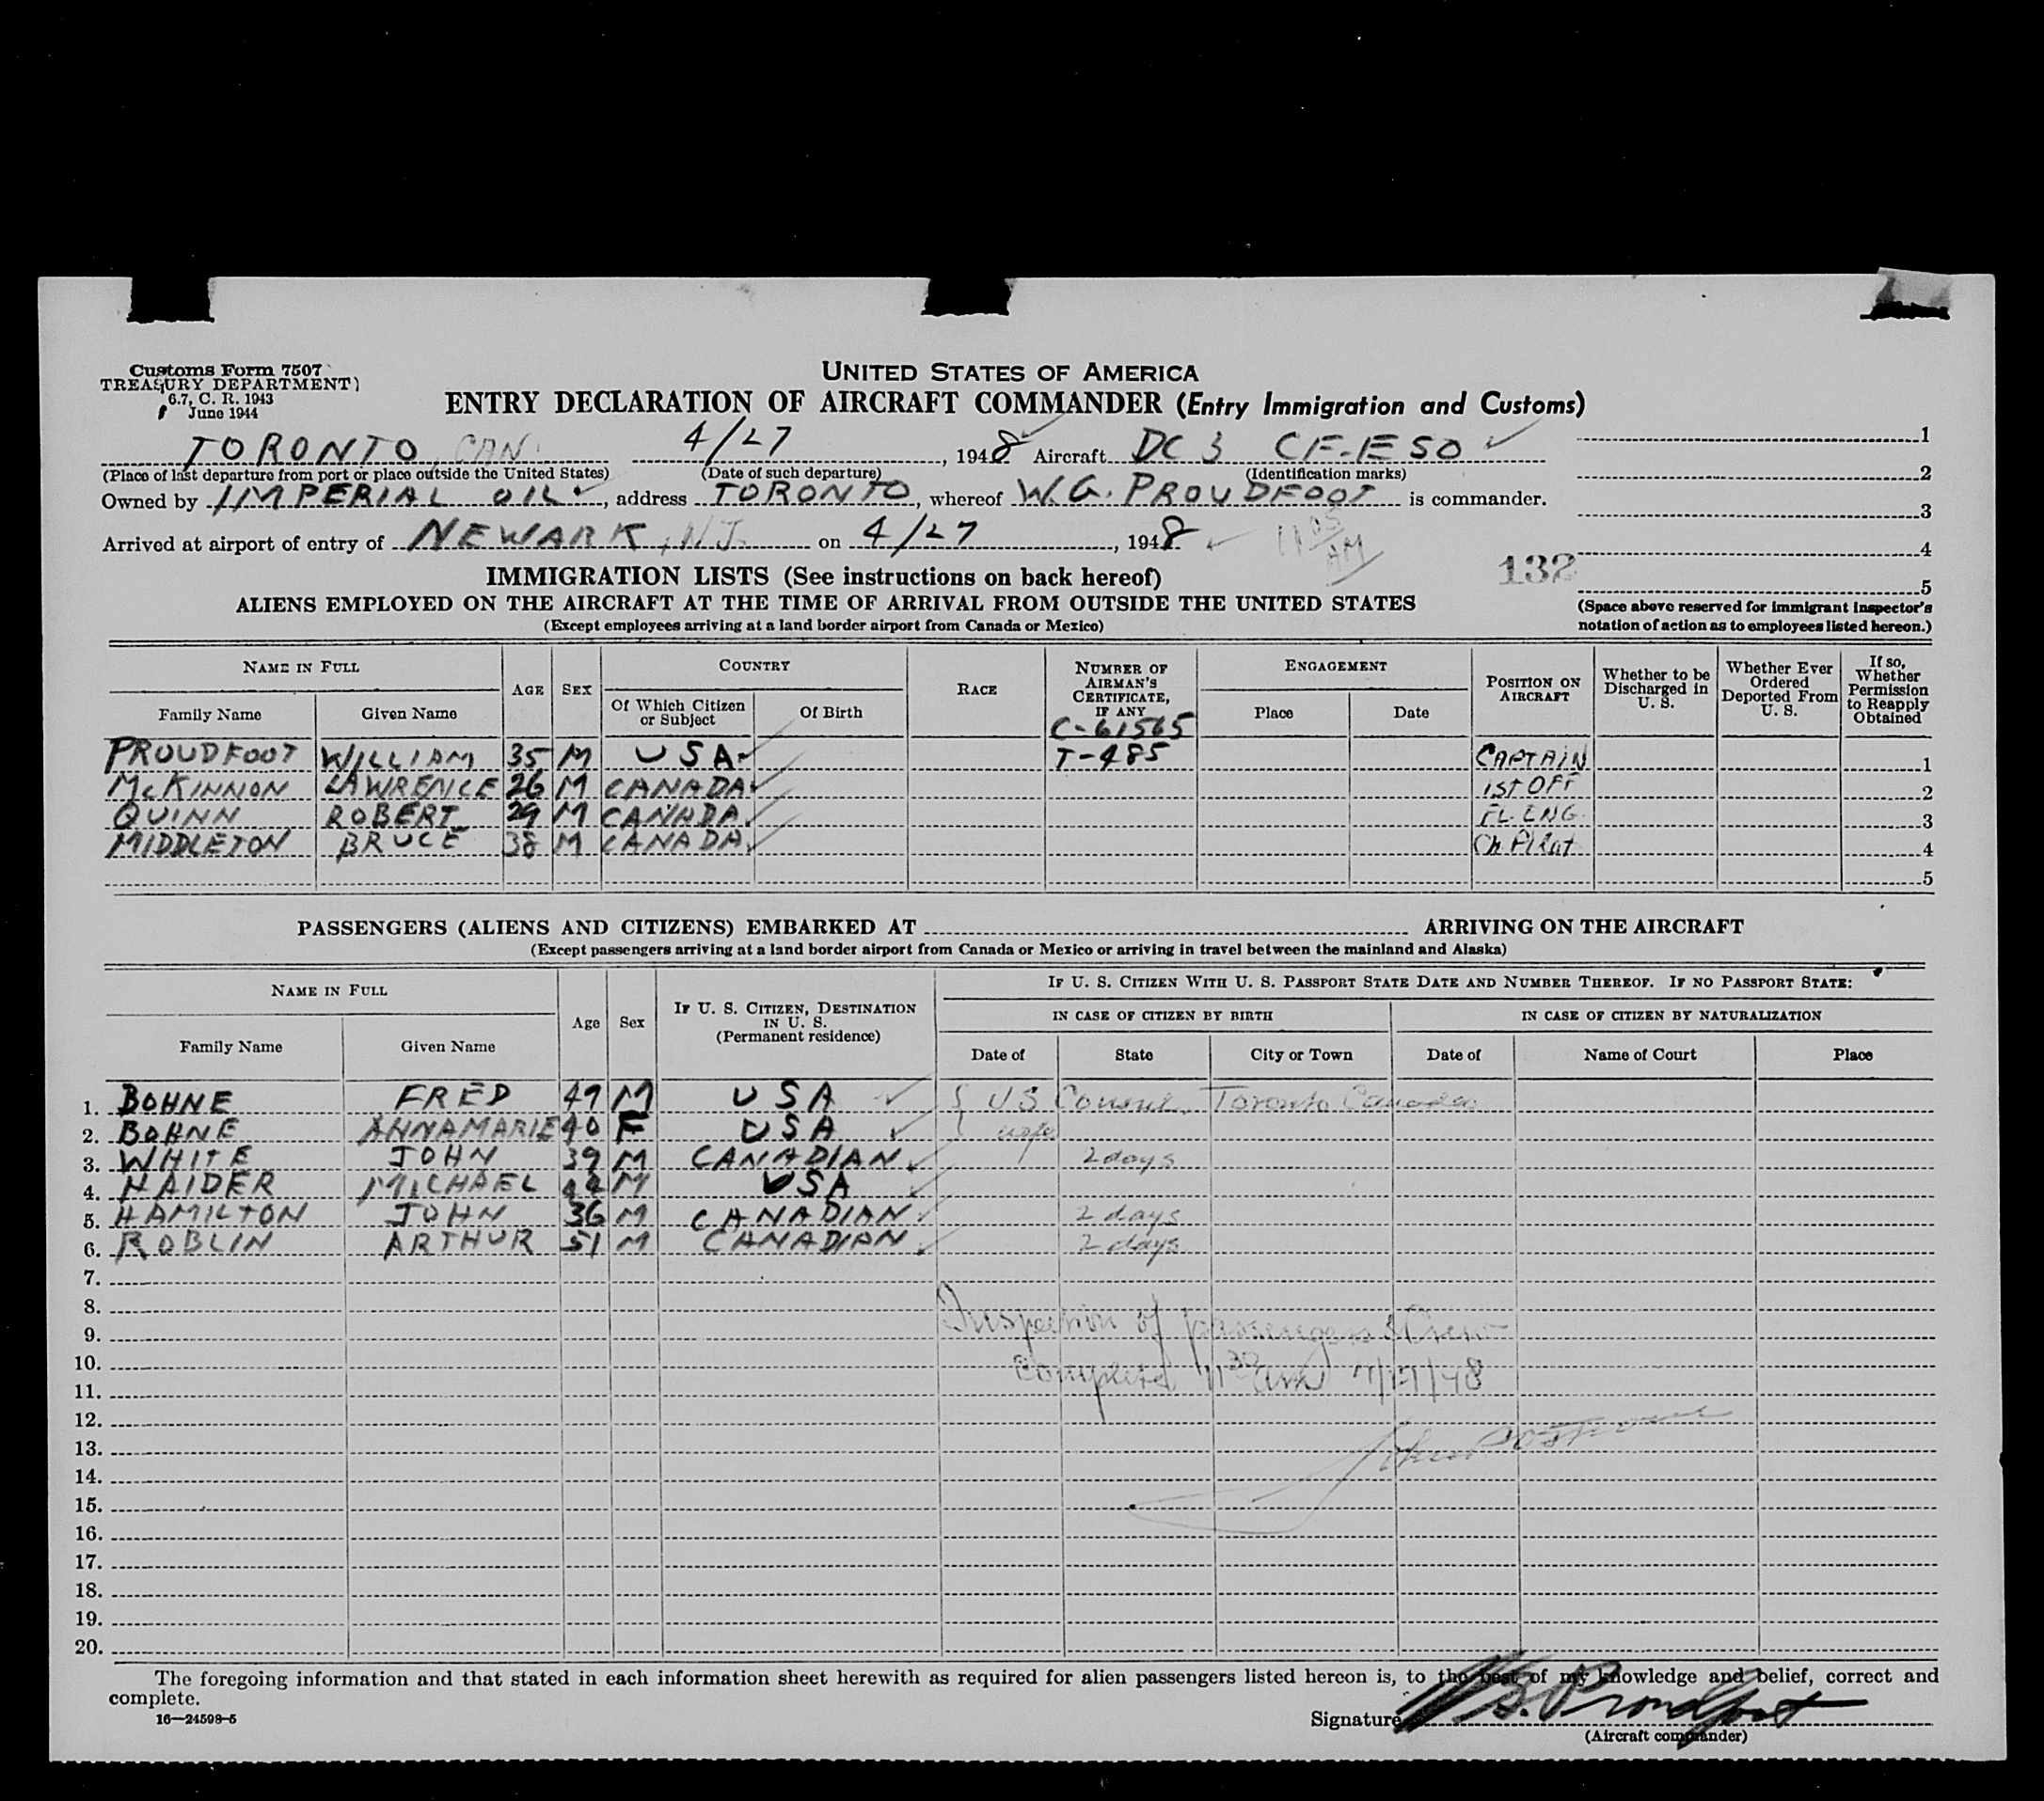 Customs Form 7507
TREASURY DEPARTMENT
6.7, C. R. 1943
June 1944
UNITED STATES OF AMERICA
ENTRY DECLARATION OF AIRCRAFT COMMANDER (Entry Immigration and Customs)
TORONTO CAN. 4/27, 1948 Aircraft DC 3 CF-ESO 1
(Place of last departure from port or place outside the United States) (Date of such departure) (Identification marks) 2
Owned by IMPERIAL OIL, address TORONTO, whereof W.G. PROUDFOOT is commander. 3
Arrived at airport of entry of NEWARK, N.J. on 4/27, 1948 11 05 AM 4
132 5
IMMIGRATION LISTS (See instructions on back hereof)
ALIENS EMPLOYED ON THE AIRCRAFT AT THE TIME OF ARRIVAL FROM OUTSIDE THE UNITED STATES
(Except employees arriving at a land border airport from Canada or Mexico)
(Space above reserved for immigrant inspector's notation of action as to employees listed hereon.)
NAME IN FULL AGE SEX COUNTRY RACE NUMBER OF AIRMAN'S CERTIFICATE, IF ANY ENGAGEMENT POSITION ON AIRCRAFT Whether to be Discharged in U. S. Whether Ever Ordered Deported From U. S. If so, Whether Permission to Reapply Obtained
Family Name Given Name Of Which Citizen or Subject Of Birth Place Date
C-61565
PROUDFOOT WILLIAM 35 M USA T-485 CAPTAIN 1
McKINNON LAWRENCE 26 M CANADA 1ST OFF 2
QUINN ROBERT 29 M CANADA FL ENG. 3
MIDDLETON BRUCE 38 M CANADA Ch. Pilot 4
5
PASSENGERS (ALIENS AND CITIZENS) EMBARKED AT ARRIVING ON THE AIRCRAFT
(Except passengers arriving at a land border airport from Canada or Mexico or arriving in travel between the mainland and Alaska)
NAME IN FULL Age Sex IF U. S. CITIZEN, DESTINATION IN U. S. (Permanent residence) IF U. S. CITIZEN WITH U. S. PASSPORT STATE DATE AND NUMBER THEREOF. IF NO PASSPORT STATE:
IN CASE OF CITIZEN BY BIRTH IN CASE OF CITIZEN BY NATURALIZATION
Family Name Given Name Date of State City or Town Date of Name of Court Place
1. BOHNE FRED 49 M USA US Consul, Toronto Canada
2. BOHNE ANNAMARIE 40 F USA
3. WHITE JOHN 39 M CANADIAN 2 days
4. HAIDER MICHAEL 44 M USA
5. HAMILTON JOHN 36 M CANADIAN 2 days
6. ROBLIN ARTHUR 51 M CANADIAN 2 days
7.
8.
9. Inspection of passengers & Crew
10.
11. Completed 11 30 am 4/27/48
12.
13.
14.
15.
16.
17.
18.
19.
20.
The foregoing information and that stated in each information sheet herewith as required for alien passengers listed hereon is, to the best of my knowledge and belief, correct and
complete.
16—24598-5
Signature W. G. Proudfoot
(Aircraft commander)